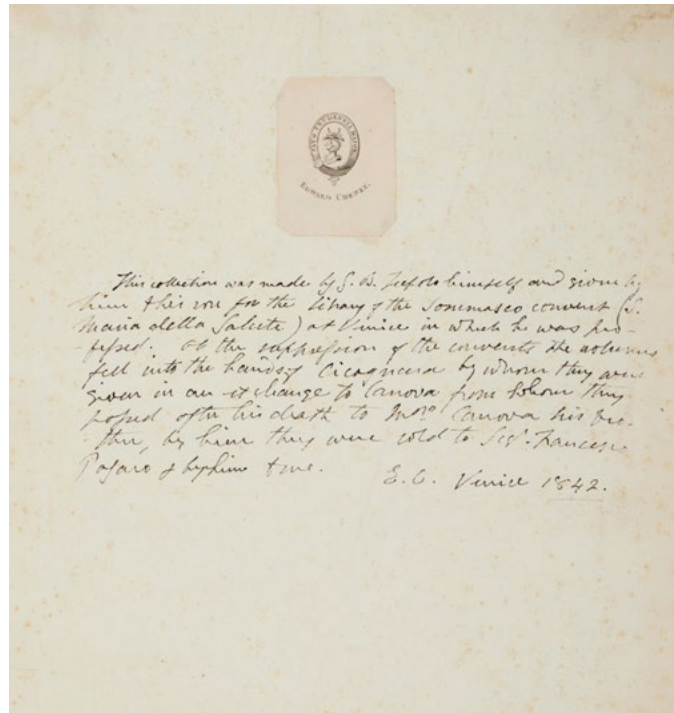 EDWARD CHENEY.
This collection was made by G. B. Tiepolo himself and given by
him to his son for the library of the Sommasco convent (S.
Maria della Salute) at Venice in which he was pro-
-fessed. At the suppression of the convents the volumes
fell into the hands of Cicognara by whom they were
given in an exchange to Canova from whom they
passed after his death to Monr Canova his bro-
ther, by him they were sold to Sigr Francesco
Pesaro & by him to me.
E. C. Venice 1842.